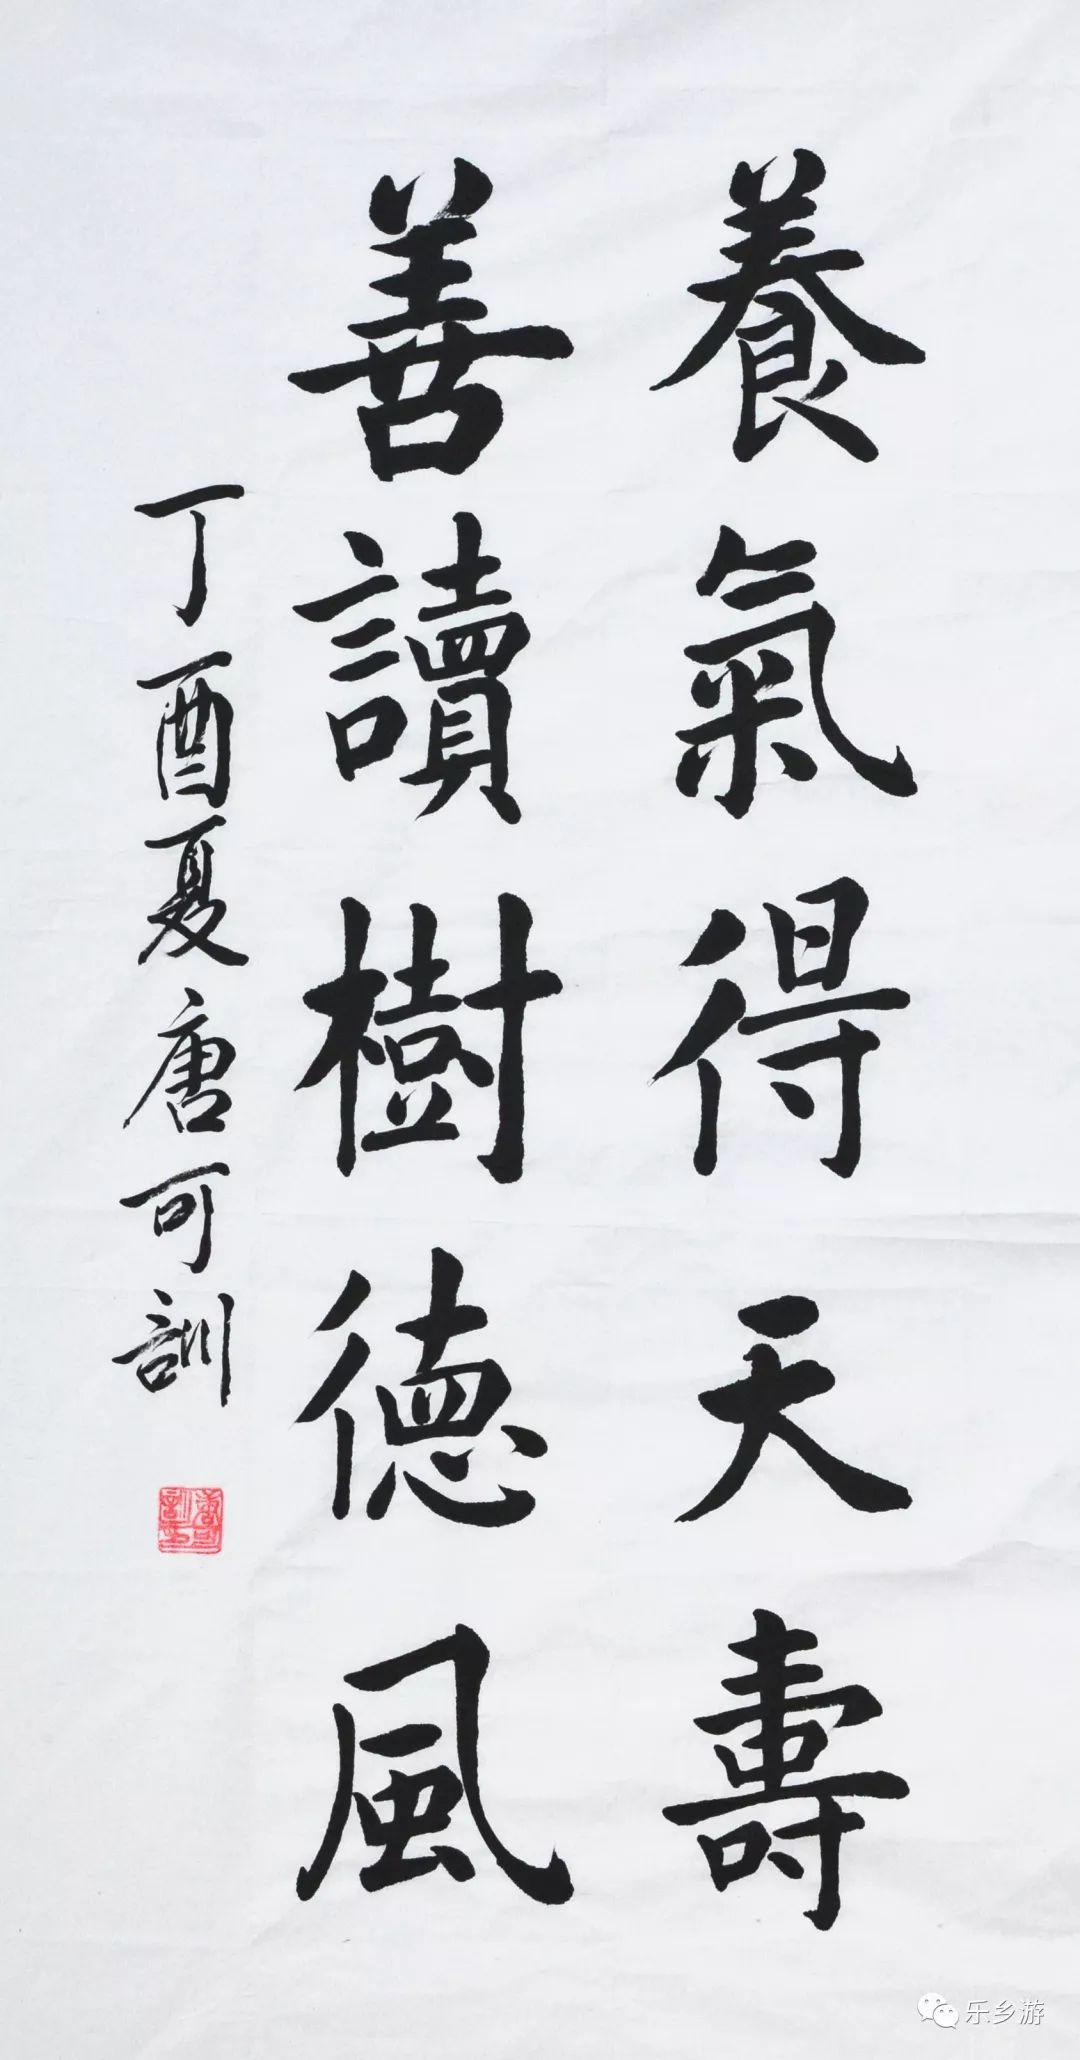 養氣得天壽
善讀樹德風
丁酉夏唐可訓
唐可訓印
乐乡游